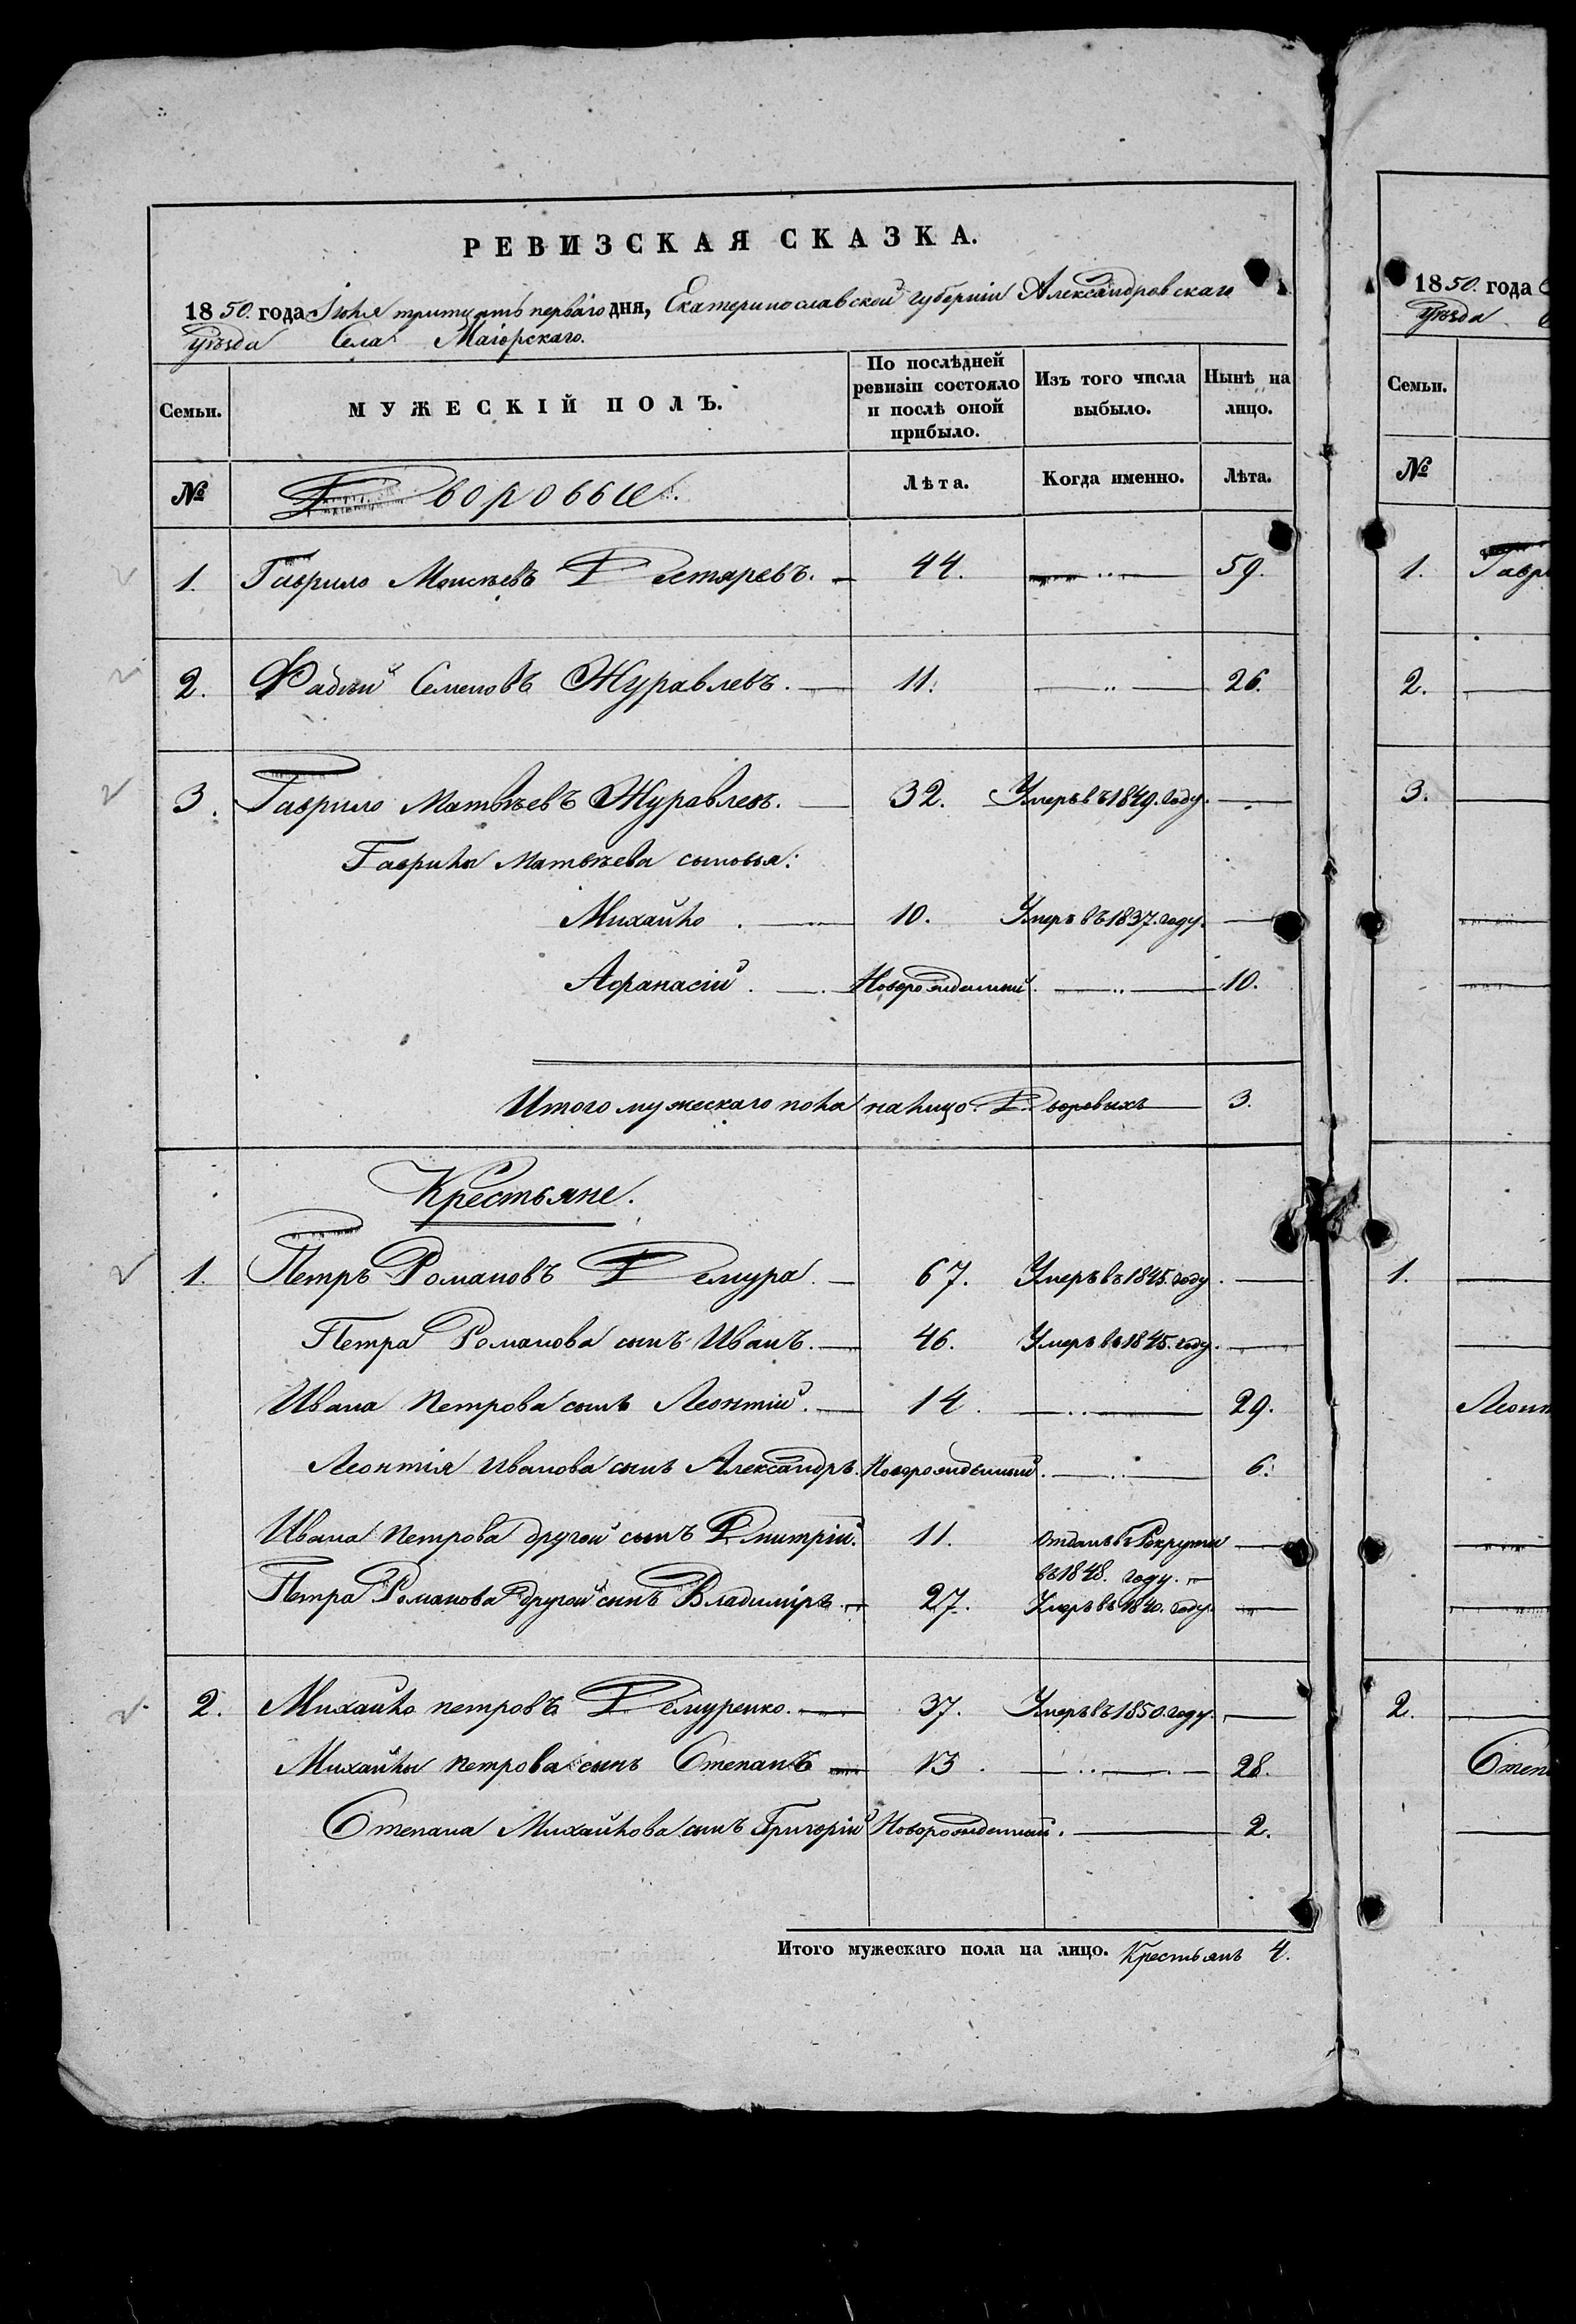 РЕВИЗСКАЯ СКАЗКА.
1850. года Іюля тритцать перваго дня, Екатеринославской губерніи Александровскаго
Уѣзда Села Маіорскаго.
Семьи.
МУЖЕСКІЙ ПОЛЪ.
По послѣдней ревизіи состояло и послѣ оной прибыло.
Изъ того числа выбыло.
Нынѣ на лицо.
№ Дворовые. Лѣта. Когда именно. Лѣта.
1. Гаврило Моисѣевъ Дегтяревъ. 44. 59.
2. Фадѣй Семеновъ Журавлевъ. 11. 26.
3. Гаврило Матвѣевъ Журавлевъ. 32. Умеръ въ 1849. году.
Гаврилы Матвѣева сыновья:
Михайло 10. Умеръ въ 1837. году.
Афанасій. Новорожденный. 10.
Итого мужескаго пола на лицо. Дворовыхъ 3.
Крестьяне.
1. Петръ Романовъ Демура. 67. Умеръ въ 1845. году.
Петра Романова сынъ Иванъ. 46. Умеръ въ 1845. году.
Ивана Петрова сынъ Леонтій. 14. 29.
Леонтія Иванова сынъ Александръ. Новорожденный. 6.
Ивана Петрова другой сынъ Дмитрій. 11. Отданъ въ Рекруты
въ 1848. году.
Петра Романова другой сынъ Владиміръ. 27. Умеръ въ 1840. году.
2. Михайло петровъ Демуренко. 37. Умеръ въ 1850. году.
Михайлы петрова сынъ Степанъ 13. 28.
Степана Михайлова сынъ Григорій Новорожденный. 2.
Итого мужескаго пола на лицо. Крестьянъ 4.
1850. года
Уѣзда
Семьи.
№
1. Гаври
2.
3.
1.
Леонт
2.
Степа